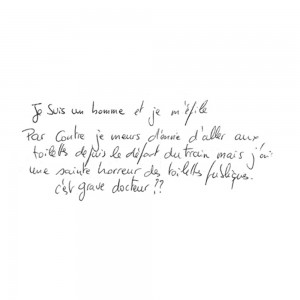 Je suis un homme et je m'épile
Par contre je meurs d'envie d'aller aux
toilettes depuis le départ du train mais j'ai
une sainte horreur des toilettes publiques.
c'est grave docteur ??